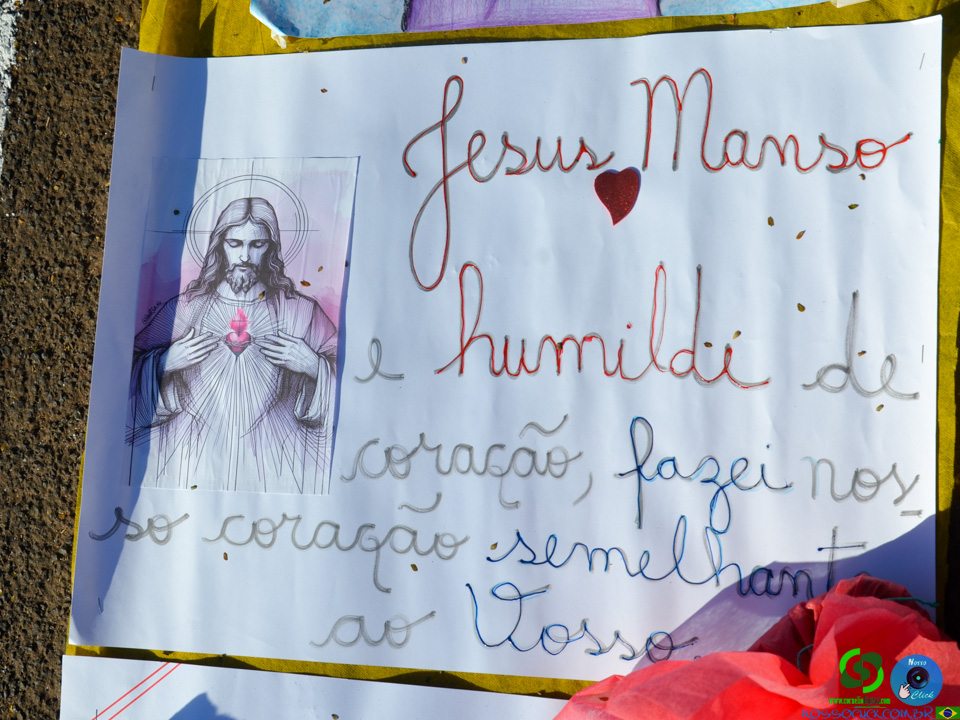 Jesus Manso
e humilde de
coração, fazei nos
so coração semelhant
ao Vosso.
Nosso
Click